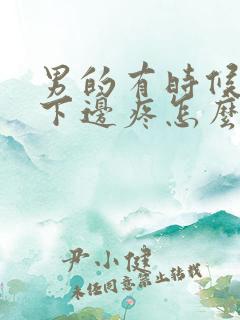 男的有時候
下邊疼怎麼
尹小健
未经同意禁止转载